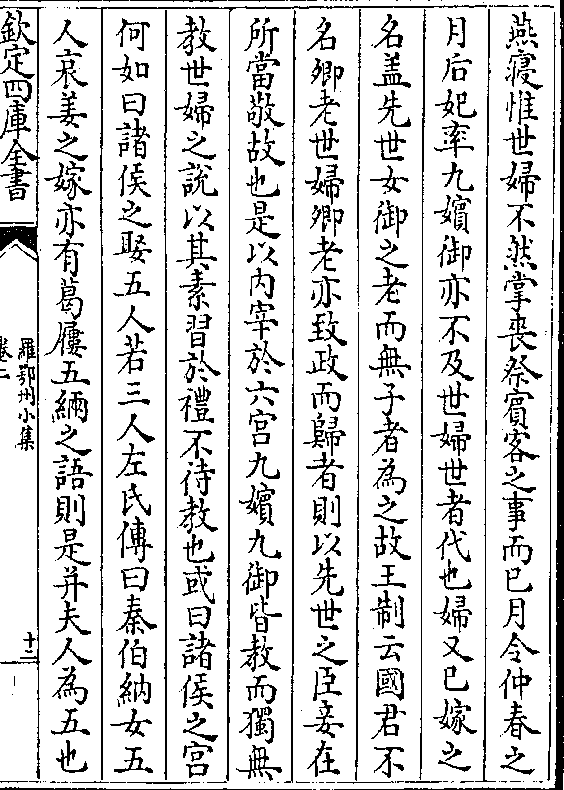 燕寢惟世婦不然掌喪祭賓客之事而已月令仲春之
月后妃率九嬪御亦不及世婦世者代也婦又已嫁之
名盖先世女御之老而無子者為之故王制云國君不
名卿老世婦卿老亦致政而歸者則以先世之臣妾在
所當敬故也是以内宰於六宫九嬪九御皆教而獨無
教世婦之說以其素習於禮不待教也或曰諸侯之宫
何如曰諸侯之娶五人若三人左氏傳曰秦伯納女五
人哀姜之嫁亦有葛屨五緉之語則是并夫人為五也
欽定四庫全書
羅鄂州小集
卷二
十二